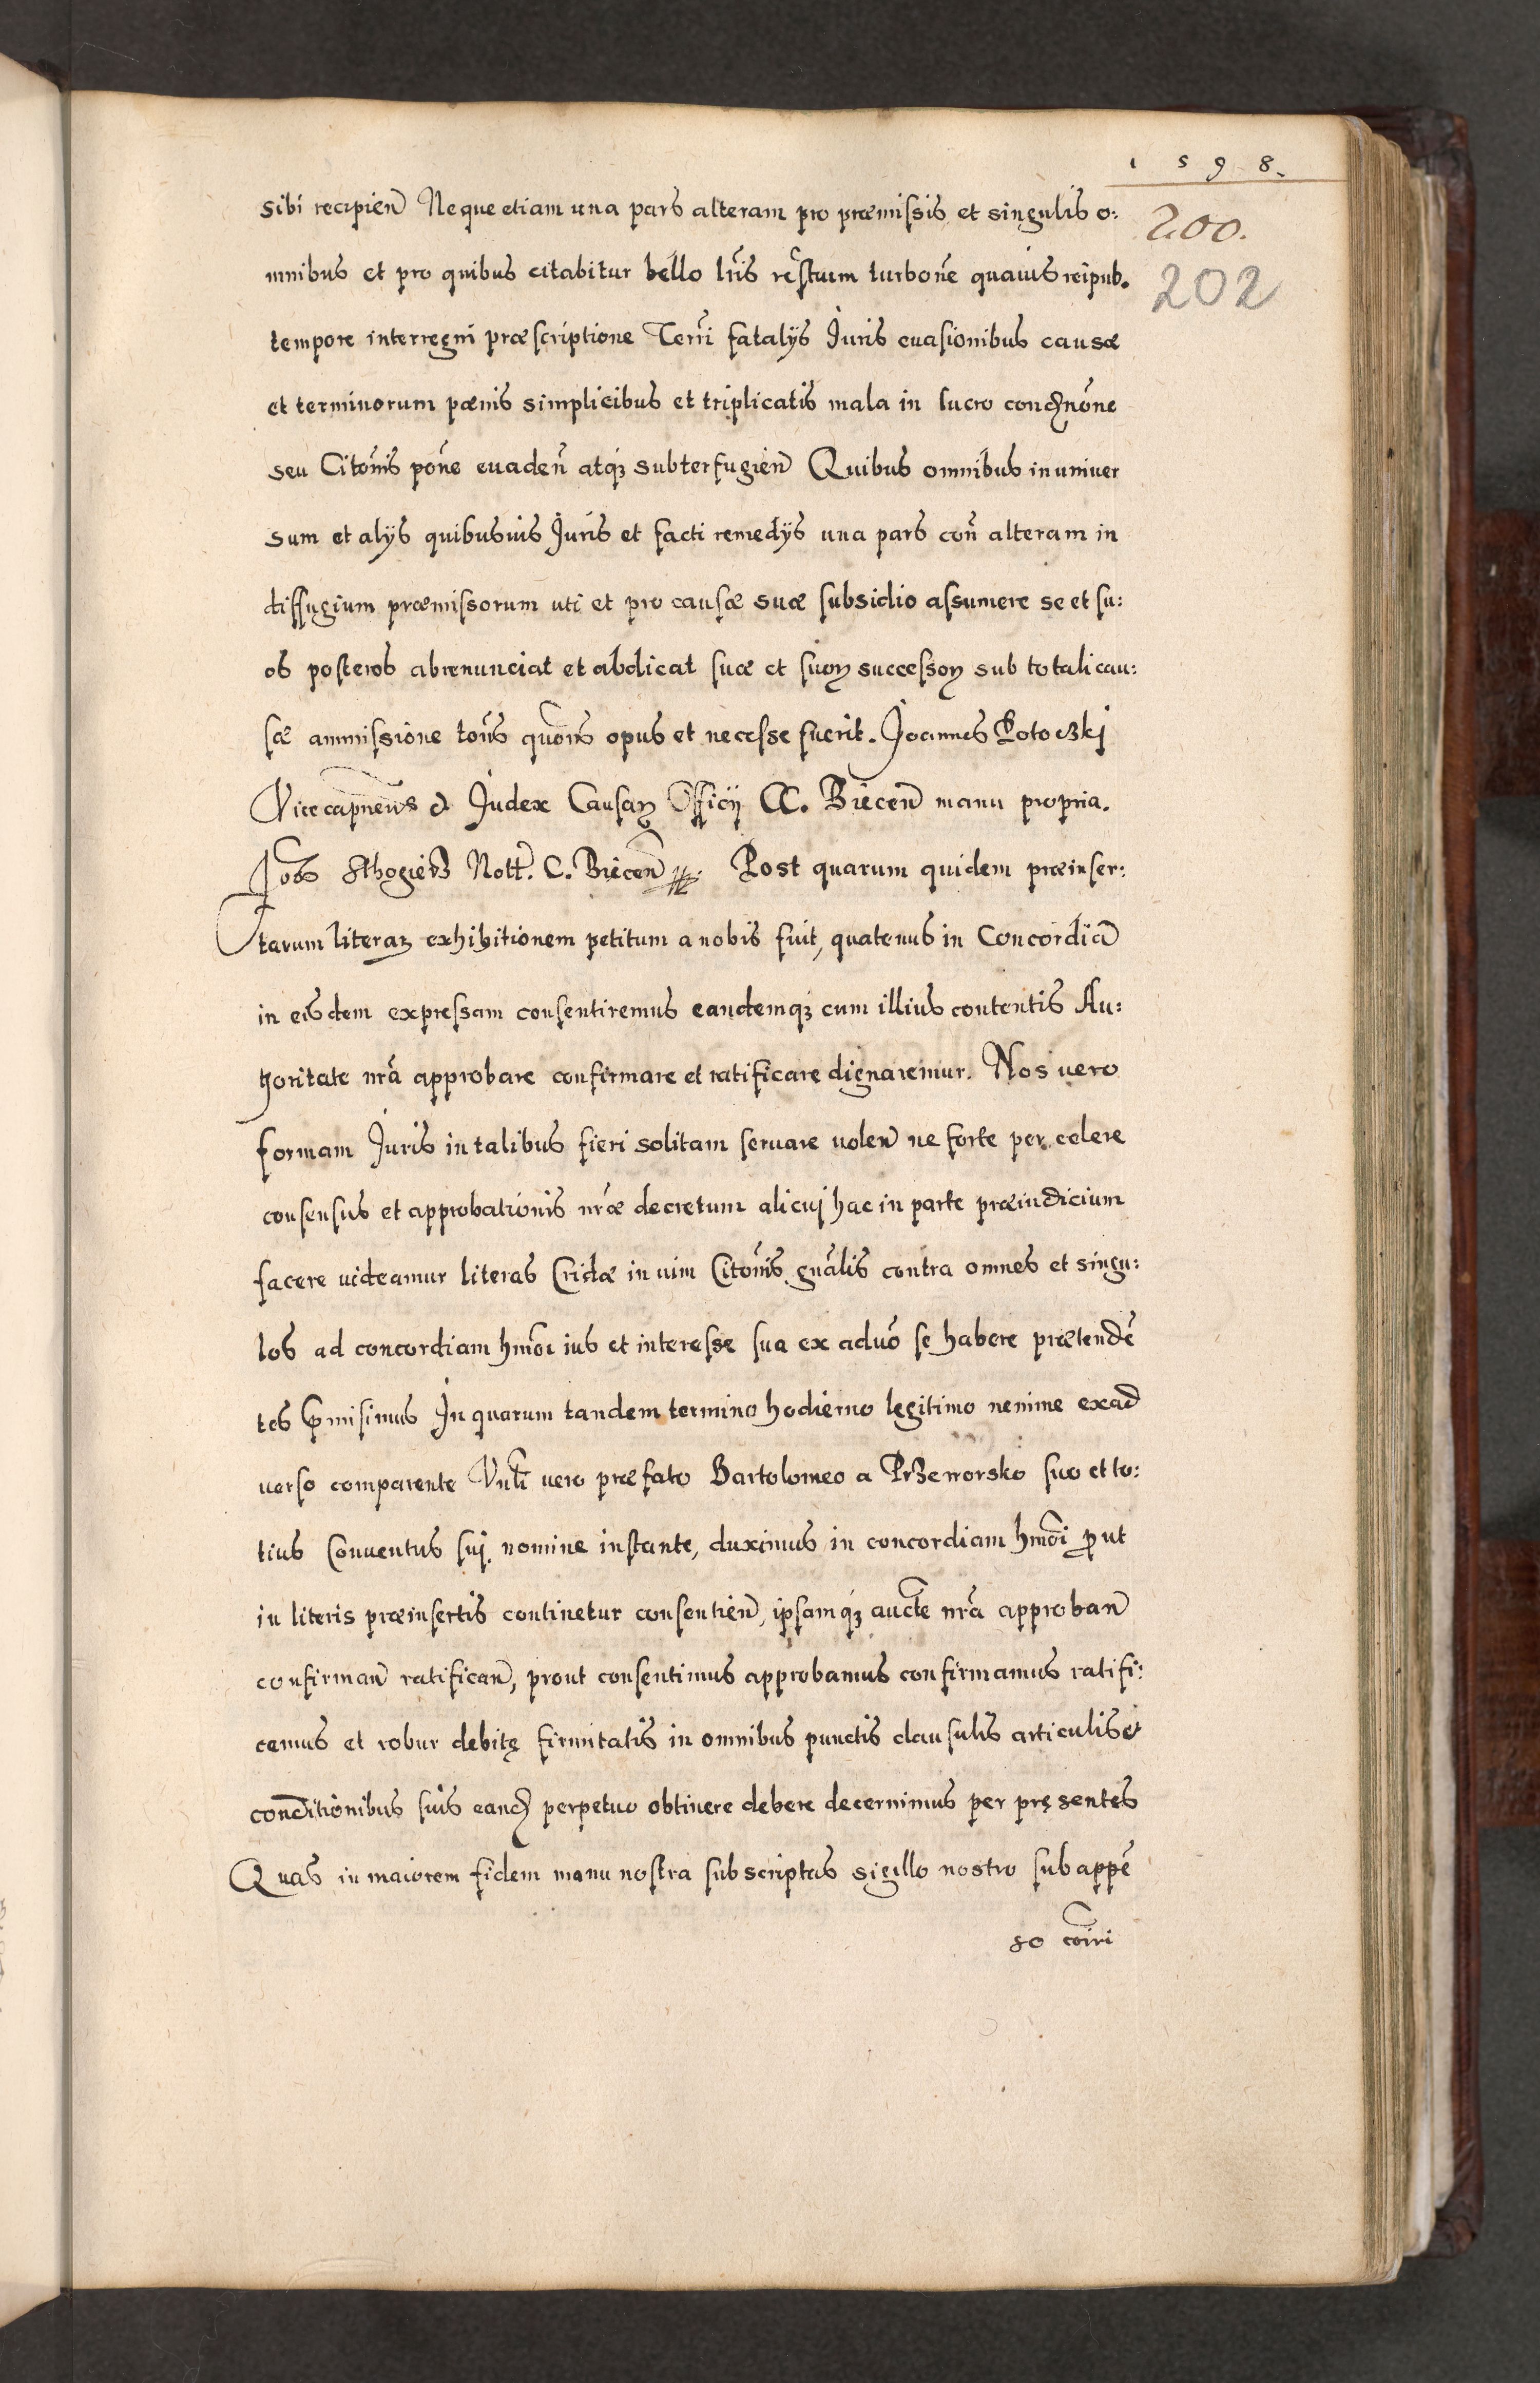 1598.
200.
202
sibi recipien̄ Neque etiam una pars alteram pro præmissis et singulis o:
mnibus et pro quibus citabitur bello lris restuum turbone quavis reipub.
tempore interregni præscriptione Termi fatalijs Juris evasionibus causæ
et terminorum pœnis simplicibus et triplicatis mala in lucro condnōne
seu Citōnis pōne evaden̄ atq3 subterfugien̄ Quibus omnibus in univer
sum et alijs quibusvis Juris et facti remedijs una pars con̄ alteram in
diffugium præmissorum uti et pro causæ suæ subsidio assumere se et su:
os posteros abrenunciat et abdicat suæ et suoꝝ successoꝝ sub totali cau:
sæ ammissione totiēs quotiēs opus et necesse fuerit. Joannes Potoczkj
Vicecapneus et Judex Causaꝝ Officij C. Biecen̄ manu propria.
Nott. C. Biecen̄ Post quarum quidem præinser:
tarum literaꝝ exhibitionem petitum a nobis fuit, quatenus in Concordiā
in eisdem expressam consentiremus eandemq3 cum illius contentis Au:
thoritate nrā approbare confirmare et ratificare dignaremur. Nos vero
formam Juris in talibus fieri solitam servare volen̄ ne forte per celere
consensus et approbationis nræ decretum alicuj hac in parte præiudicium
facere videamur literas Cridæ in vim Citōnis gnālis contra omnes et singu:
los ad concordiam hmōi ius et interesse sua ex advō se habere prætendē
tes ꝓmisimus In quarum tandem termino hodierno legitimo nemine exad
verso comparente Vnli vero præfato Bartolomeo a Przeworsko suo et to:
tius Conventus suj nomine instante, duximus in concordiam hmōi ꝓut
in literis præinsertis continetur consentien̄, ipsamq3 aucte nrā approban̄
confirman̄ ratifican̄, prout consentimus approbamus confirmamus ratifi:
camus et robur debitę firmitatis in omnibus punctis clausulis articulis et
conditionibus suis eand perpetuo obtinere debere decernimus per pręsentes
Quas in maiorem fidem manu nostra subscriptas sigillo nostro subappē
so coīri